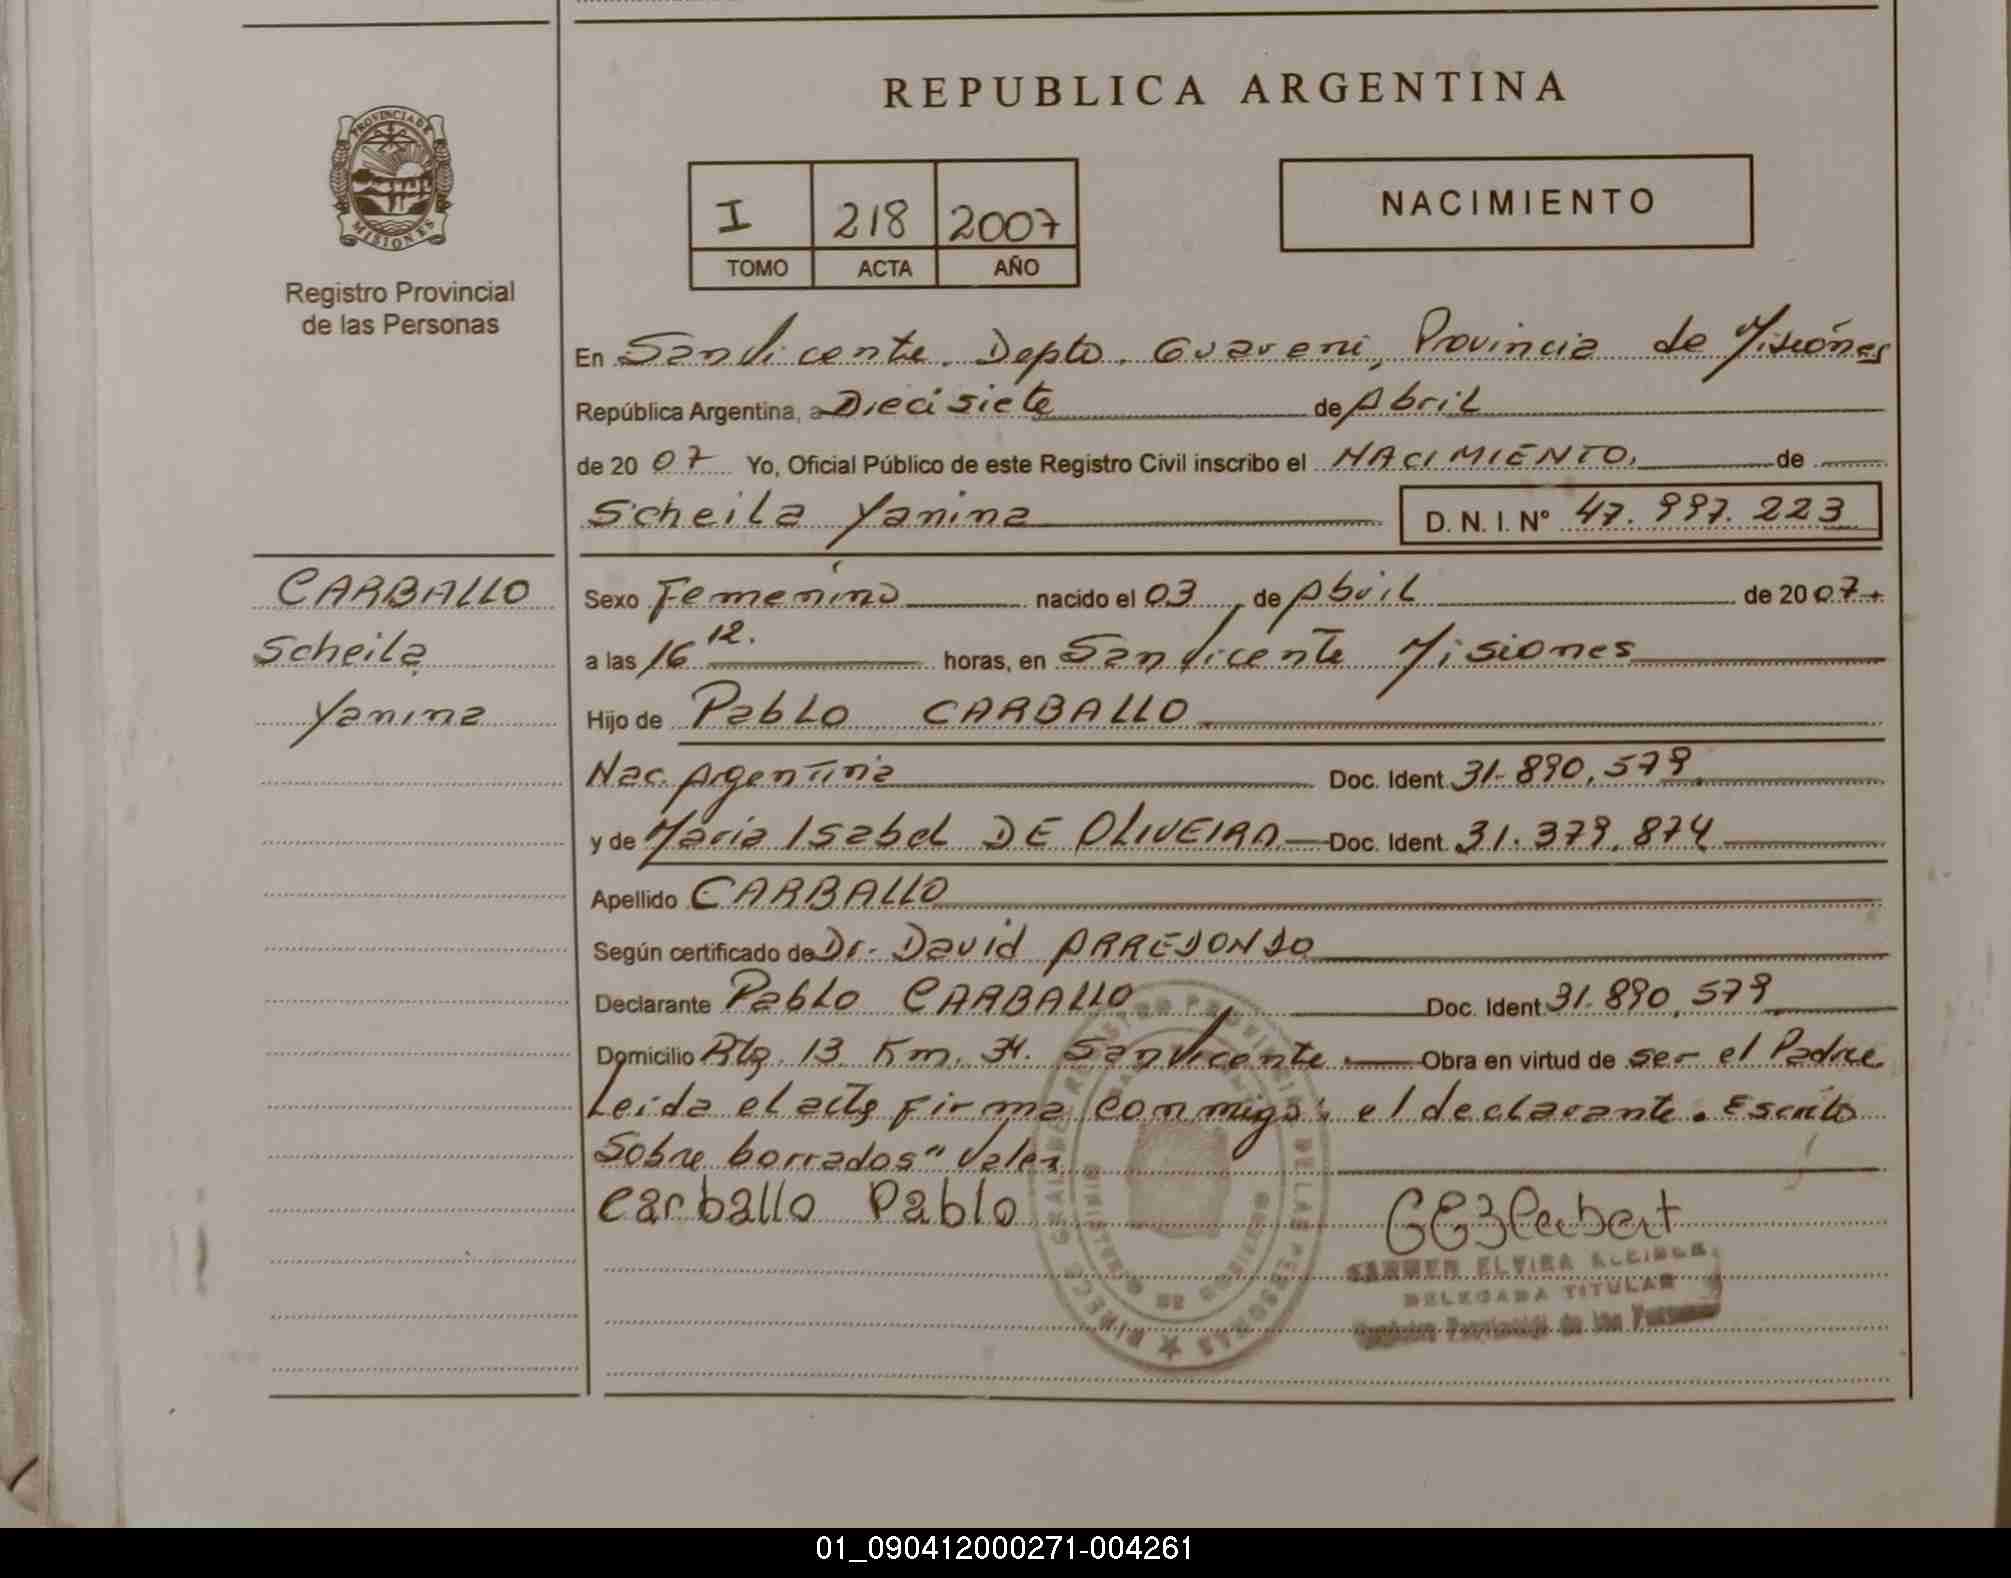 REPUBLICA ARGENTINA
PROVINCIA DE
MISIONES
Registro Provincial
de las Personas
I 218 2007
TOMO ACTA AÑO
NACIMIENTO
En San Vicente. Depto. Guarani, Provincia de Misiones
República Argentina, a Diecisiete de Abril
de 2007 Yo, Oficial Público de este Registro Civil inscribo el NACIMIENTO, de
Scheila Yanina D. N. I. Nº 47.997.223
CARBALLO
Scheila
Yanina
Sexo Femenino nacido el 03 de Abril de 2007
a las 16 12. horas, en San Vicente Misiones
Hijo de Pablo CARBALLO
Nac. Argentina Doc. Ident. 31.890.579
y de Maria Isabel DE OLIVEIRA Doc. Ident. 31.379.874
Apellido CARBALLO
Según certificado de Dr. David ARREDONDO
Declarante Pablo CARBALLO Doc. Ident 31.890.579
Domicilio Rta. 13 Km. 34. San Vicente Obra en virtud de ser el Padre
Leida el acta firma conmigo: el declarante. Escrito
Sobre borrados" Valen
Carballo Pablo
CARMEN ELVIRA
DELEGADA TITULAR
Registro Provincial de las Personas
01_090412000271-004261